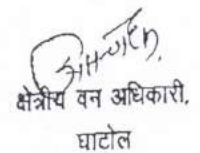 क्षेत्रीय वन अधिकारी,
घाटोल